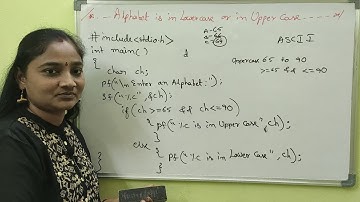 Alphabet is in Lowercase or in Upper Case
#include<stdio.h>
int main()
{
char ch;
pf("\n Enter an Alphabet:");
sf("%c",&ch);
if(ch>=65 && ch<=90)
{ pf("%c is in Upper Case",ch);
}
else
{ pf("%c is in Lower Case",ch);
}
}
A-65
ASCII
Uppercase 65 to 90
>=65 && <=90